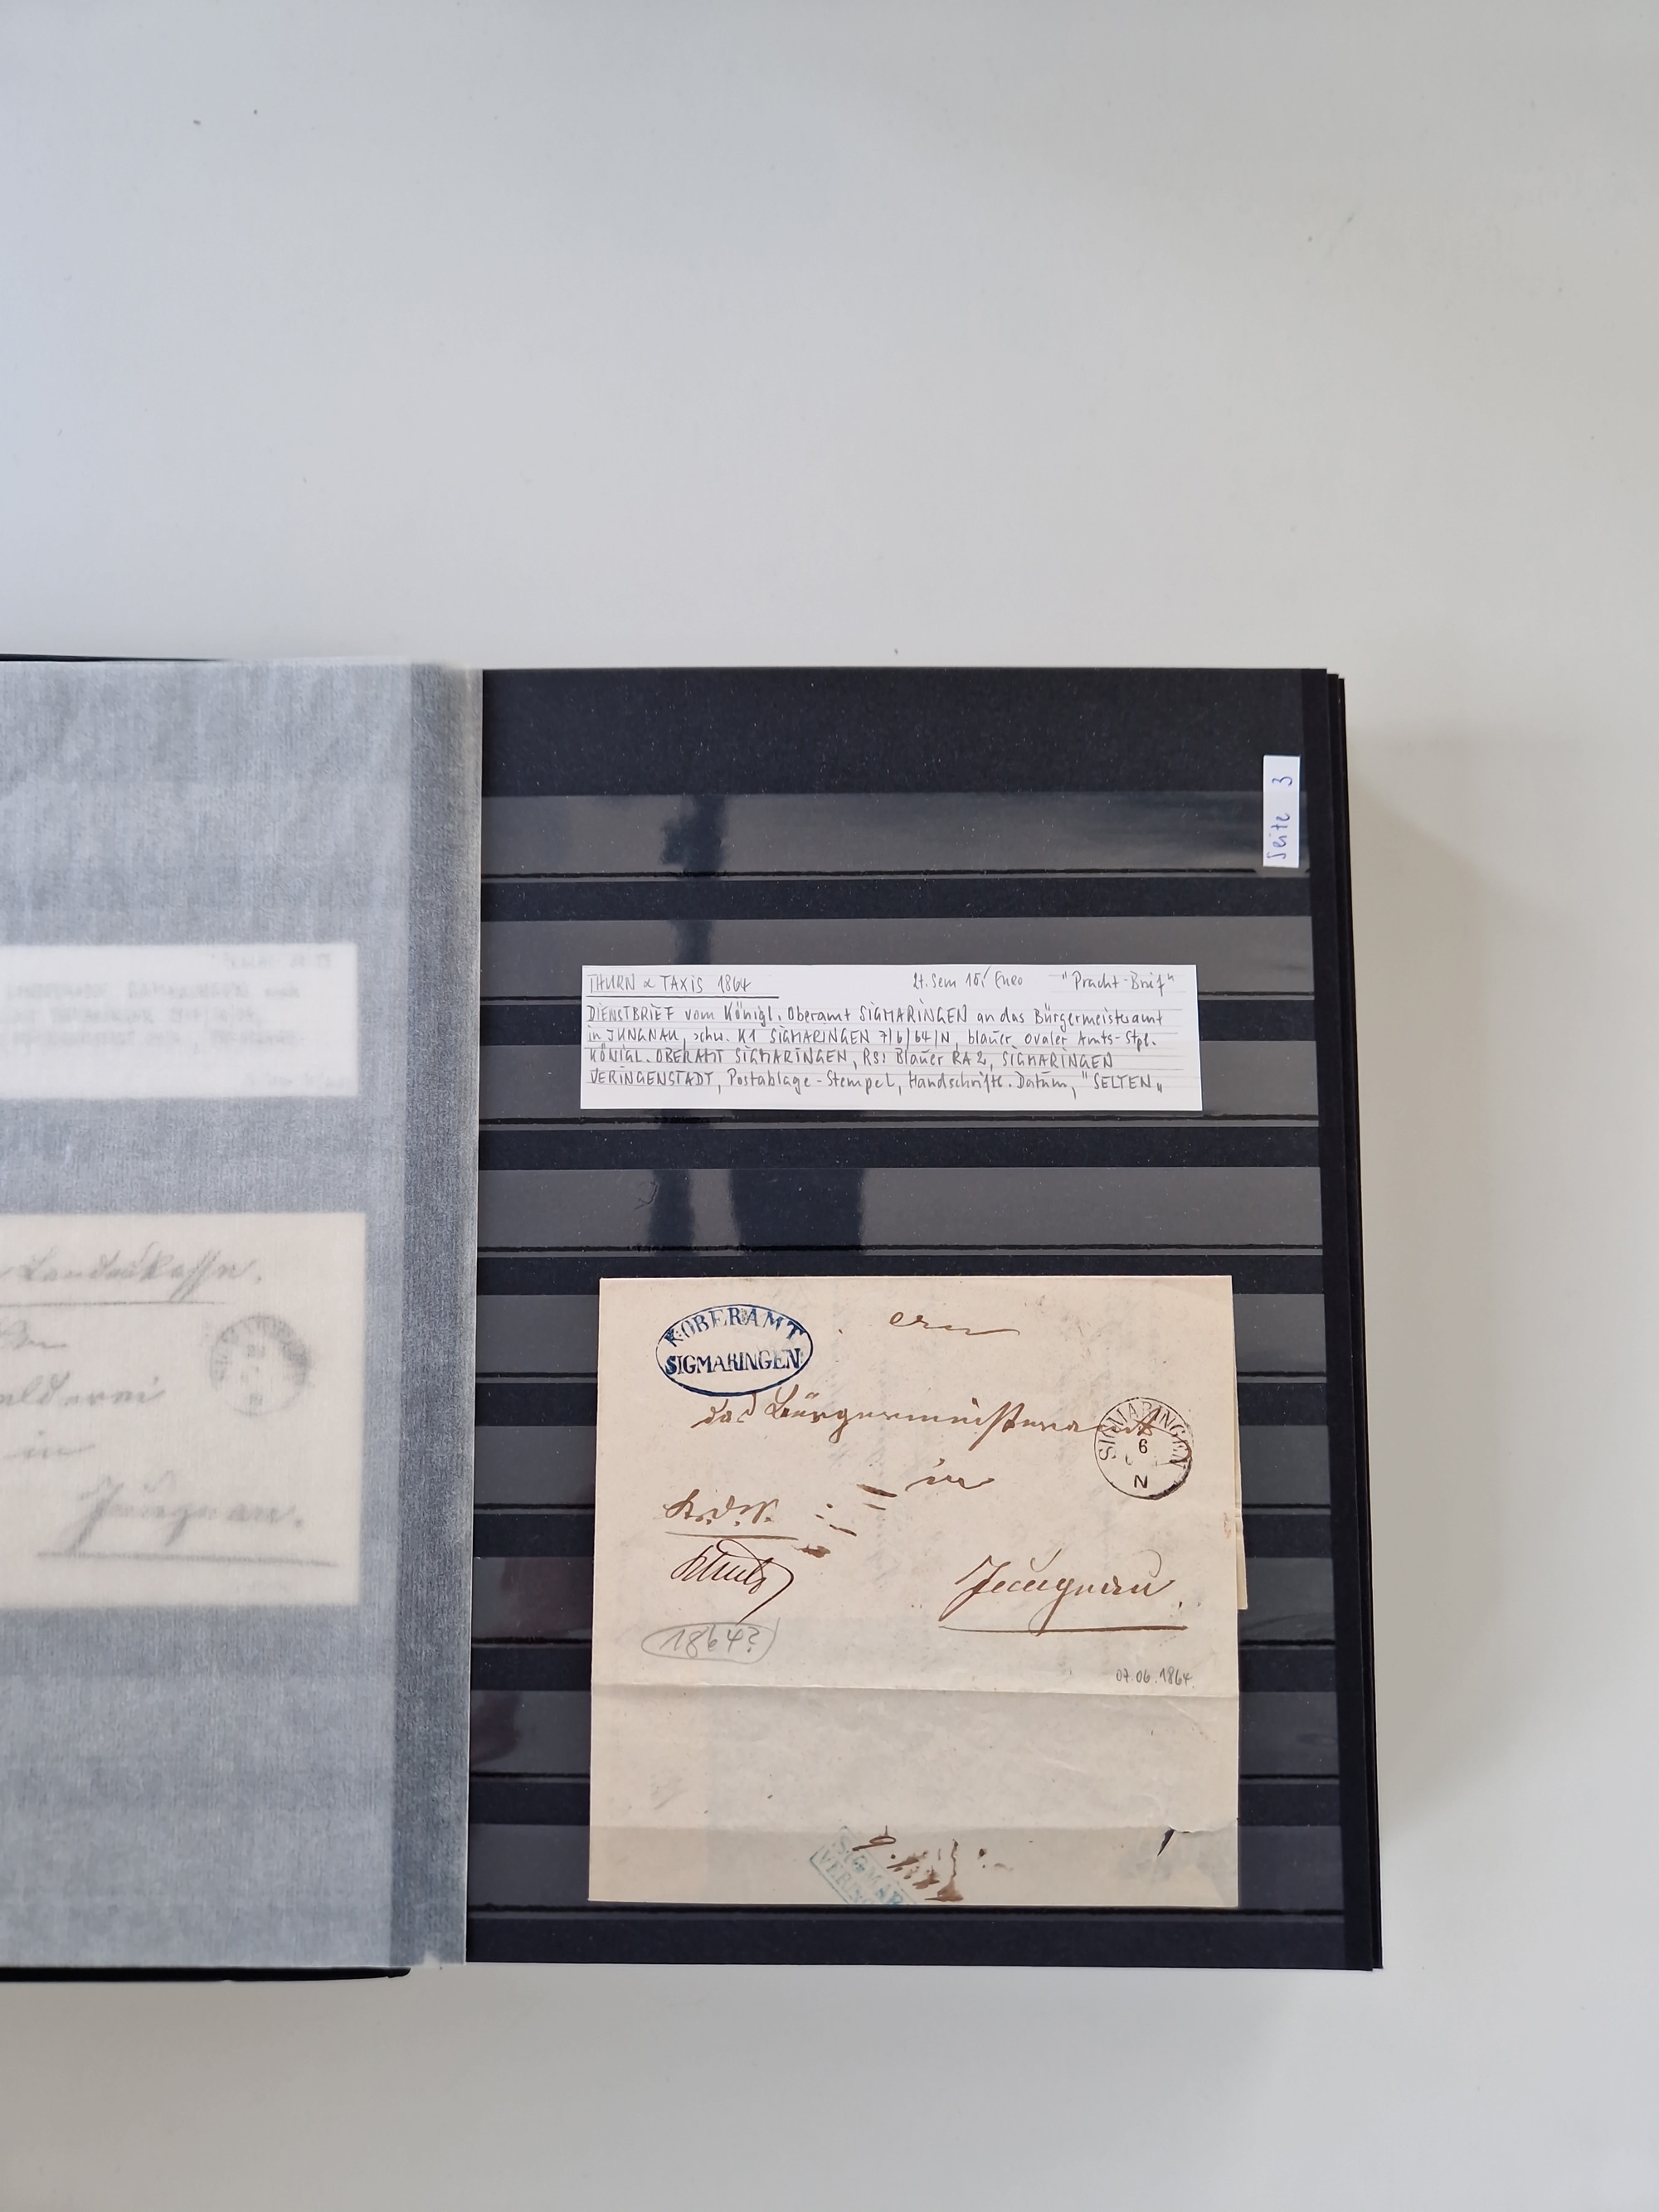 Landeskasse.
in
Jungnau.
Seite 3
THURN & TAXIS 1864 lt. Sem 15,- Euro "Pracht-Brief"
DIENSTBRIEF vom Königl. Oberamt SIGMARINGEN an das Bürgermeisteramt
in JUNGNAU, schw. K1 SIGMARINGEN 7/6/64/N, blauer, ovaler Amts-Stpl.
KÖNIGL. OBERAMT SIGMARINGEN, RS: Blauer RA2, SIGMARINGEN
VERINGENSTADT, Postablage-Stempel, Handschriftl. Datum, "SELTEN"
K.OBERAMT
SIGMARINGEN
das Bürgermeisteramt
SIGMARINGEN
6
N
in
Jungnau.
1864?
07.06.1864.
SIGMAR
VERING